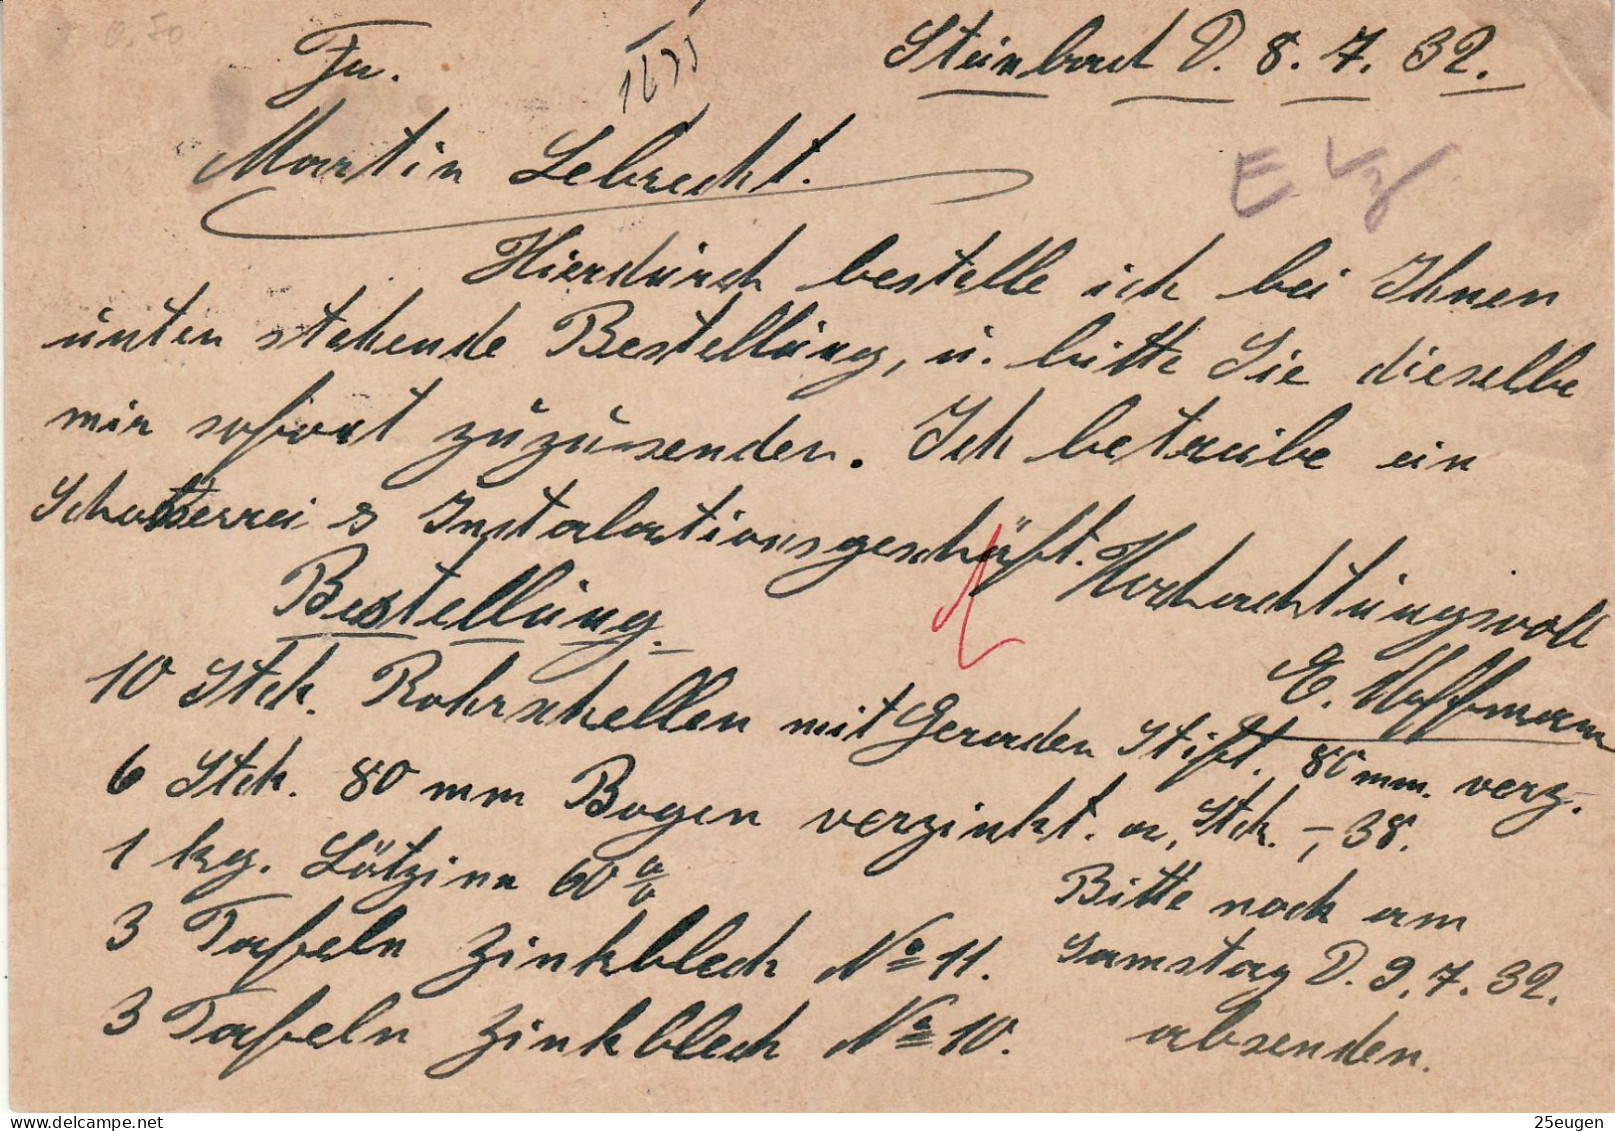 0.50
Steinbach D. 8. 7. 32.
Fa.
Martin Lebrecht.
Hierdurch bestelle ich bei Ihnen
unten stehende Bestellung, u. bitte Sie dieselbe
mir sofort zuzusenden. Ich betreibe ein
Schosserrei & Instalationsgeschäft. Hochachtungsvoll
E. Hoffmann
Bestellung.
10 Stck. Rohrschellen mit Geraden Stift. 80 mm. verz.
6 Stck. 80 mm Bogen verzinkt. a, Stck. -,38.
1 kg. Lötzinn 60 %
3 Tafeln Zinkblech No 11.
3 Tafeln Zinkblech No 10.
Bitte noch am
Samstag D. 9. 7. 32.
absenden.
www.delcampe.net
25eugen